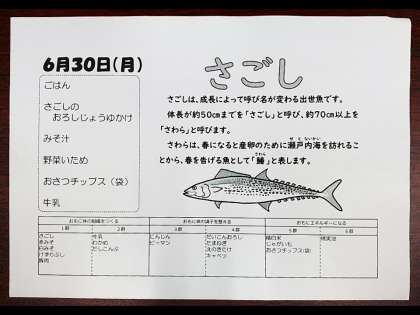 6月30日(月)
ごはん
さごしの
おろしじょうゆかけ
みそ汁
野菜いため
おさつチップス（袋）
牛乳
さごし
さごしは、成長によって呼び名が変わる出世魚です。
体長が約50cmまでを「さごし」と呼び、約70cm以上を
「さわら」と呼びます。
さわらは、春になると産卵のために瀬戸内海を訪れるこ
とから、春を告げる魚として「鰆」と表します。
おもに体の組織をつくる おもに体の調子を整える おもにエネルギーになる
1群 2群 3群 4群 5群 6群
さごし 牛乳 にんじん だいこんおろし 精白米
赤みそ わかめ ピーマン たまねぎ じゃがいも
白みそ だしこんぶ えのきたけ おさつチップス(袋)
けずりぶし キャベツ
豚肉